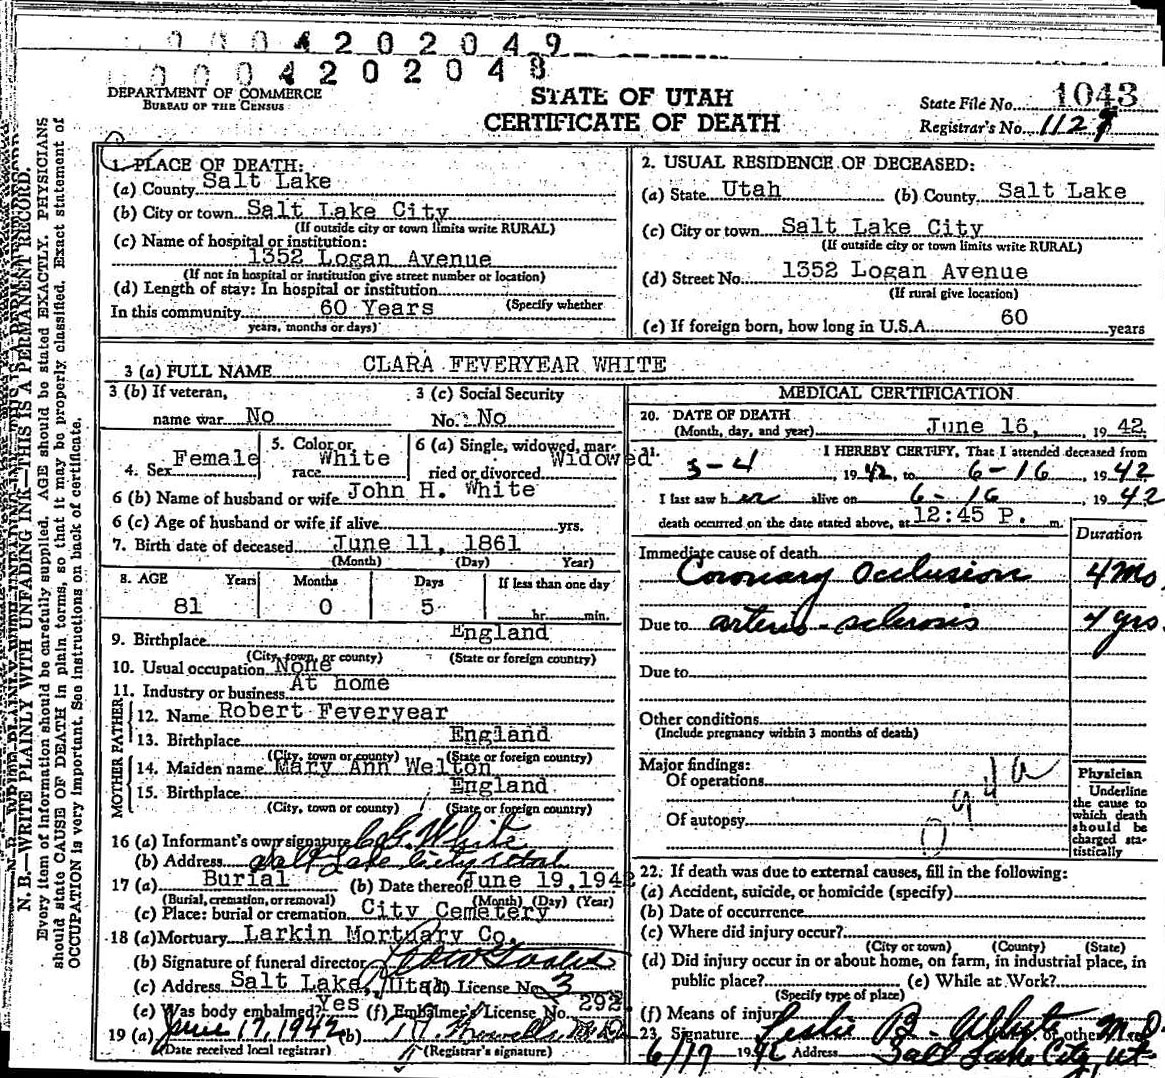 0 0 0 4 2 0 2 0 4 9
0 0 0 4 2 0 2 0 4 8
DEPARTMENT OF COMMERCE
BUREAU OF THE CENSUS
STATE OF UTAH
CERTIFICATE OF DEATH
State File No. 1043
Registrar's No. 1129
N. B.—WRITE PLAINLY WITH UNFADING INK—THIS IS A PERMANENT RECORD.
Every item of information should be carefully supplied. AGE should be stated EXACTLY. PHYSICIANS
should state CAUSE OF DEATH in plain terms, so that it may be properly classified. Exact statement of
OCCUPATION is very important. See instructions on back of certificate.
1. PLACE OF DEATH:
(a) County Salt Lake
(b) City or town Salt Lake City
(If outside city or town limits write RURAL)
(c) Name of hospital or institution:
1352 Logan Avenue
(If not in hospital or institution give street number or location)
(d) Length of stay: In hospital or institution
(Specify whether
In this community 60 Years
years, months or days)
2. USUAL RESIDENCE OF DECEASED:
(a) State Utah (b) County Salt Lake
(c) City or town Salt Lake City
(If outside city or town limits write RURAL)
(d) Street No. 1352 Logan Avenue
(If rural give location)
(e) If foreign born, how long in U.S.A. 60 years
3 (a) FULL NAME CLARA FEVERYEAR WHITE
3 (b) If veteran,
name war No
3 (c) Social Security
No. No
4. Sex Female
5. Color or
race White
6 (a) Single, widowed, mar-
ried or divorced Widowed
6 (b) Name of husband or wife John H. White
6 (c) Age of husband or wife if alive yrs.
7. Birth date of deceased June 11, 1861
(Month) (Day) Year)
8. AGE Years Months Days If less than one day
81 0 5 hr. min.
9. Birthplace England
(City, town, or county) (State or foreign country)
10. Usual occupation None
11. Industry or business At home
FATHER
12. Name Robert Feveryear
13. Birthplace England
(City, town or county) (State or foreign country)
MOTHER
14. Maiden name Mary Ann Welton
15. Birthplace England
(City, town or county) (State or foreign country)
16 (a) Informant's own signature White
(b) Address Salt Lake City Utah
17 (a) Burial (b) Date thereof June 19, 1942
(Burial, cremation, or removal) (Month) (Day) (Year)
(c) Place: burial or cremation City Cemetery
18 (a) Mortuary Larkin Mortuary Co.
(b) Signature of funeral director
(c) Address Salt Lake, Utah (d) License No. 3
(e) Was body embalmed? Yes (f) Embalmer's License No. 292
19 (a) June 17, 1942 (b)
(Date received local registrar) (Registrar's signature)
MEDICAL CERTIFICATION
20. DATE OF DEATH
(Month, day, and year) June 16, 19 42
21. I HEREBY CERTIFY, That I attended deceased from
5-4, 19 42, to 6-16, 19 42
I last saw her alive on 6-16, 19 42
death occurred on the date stated above, at 12:45 P. m.
Duration
Immediate cause of death
Coronary Occlusion 4 Mo.
Due to arterio-sclerosis 4 yrs.
Due to
Other conditions
(Include pregnancy within 3 months of death)
Major findings:
Of operations
Of autopsy
094a
Physician
Underline
the cause to
which death
should be
charged sta-
tistically
22. If death was due to external causes, fill in the following:
(a) Accident, suicide, or homicide (specify)
(b) Date of occurrence
(c) Where did injury occur?
(City or town) (County) (State)
(d) Did injury occur in or about home, on farm, in industrial place, in
public place? (e) While at Work?
(Specify type of place)
(f) Means of injury
23. Signature Leslie B. White other M.D.
6/17 1942 Address Salt Lake City, Ut